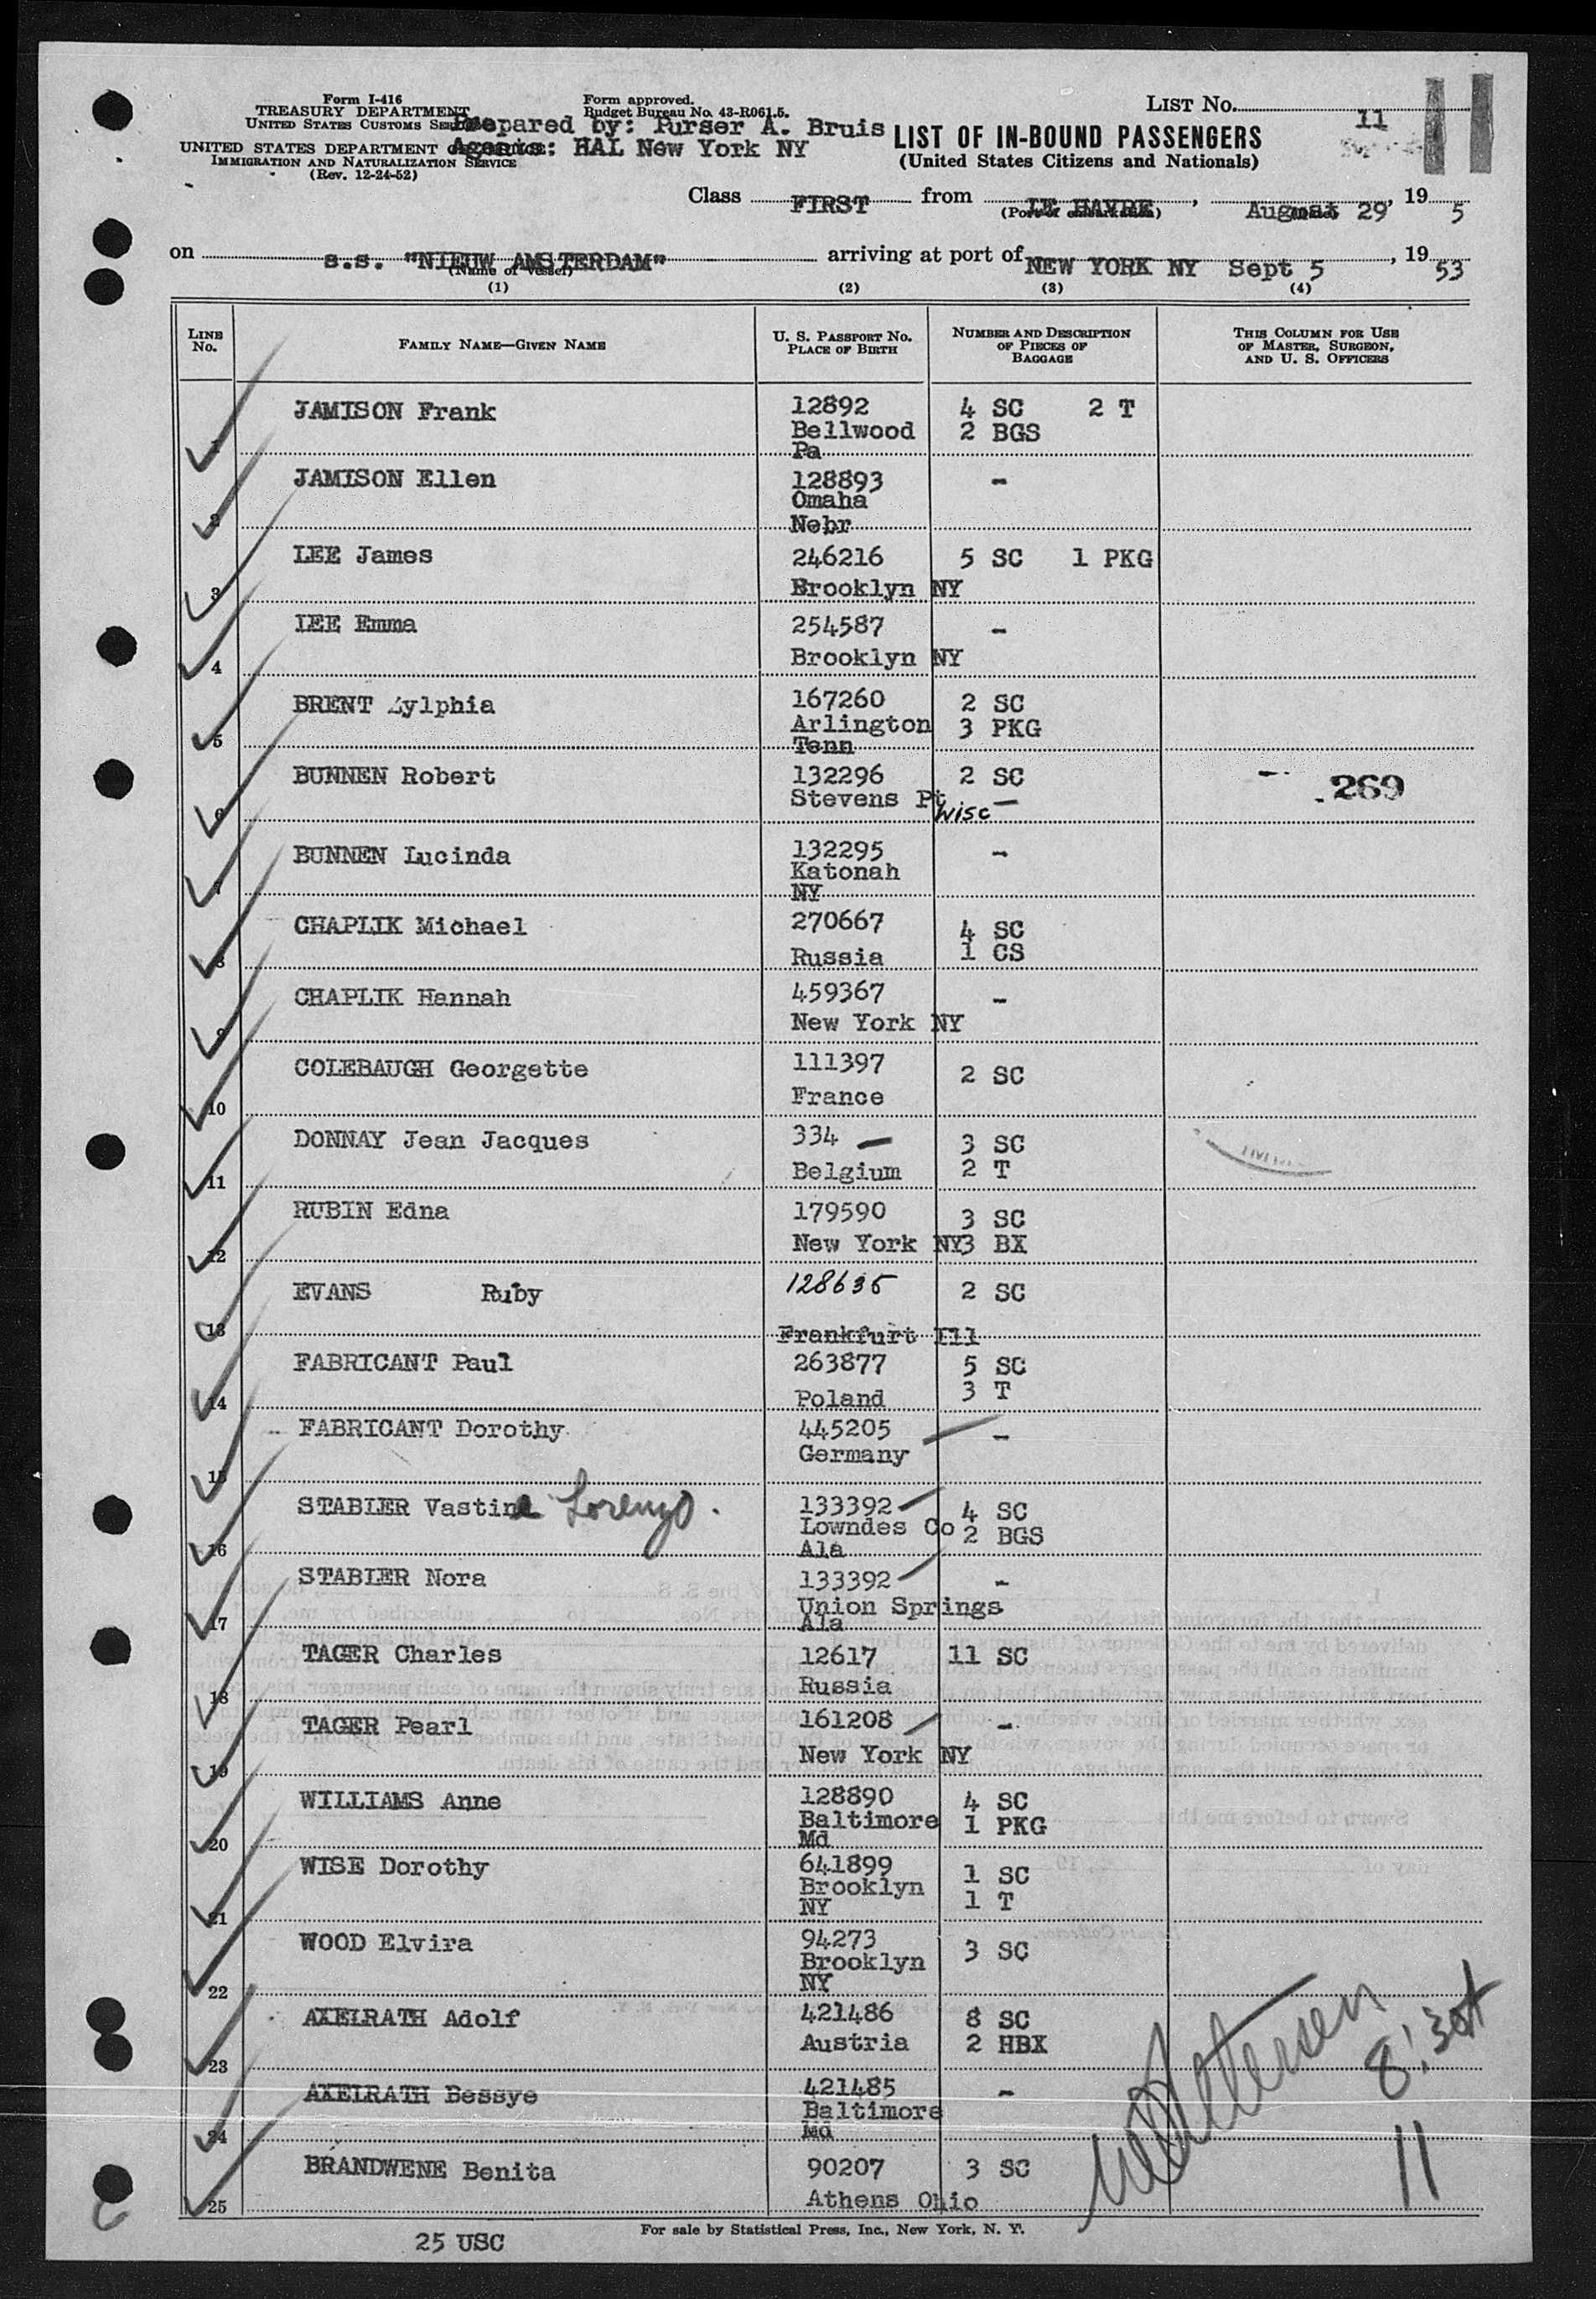 Form I-416
TREASURY DEPARTMENT
UNITED STATES CUSTOMS
UNITED STATES DEPARTMENT
IMMIGRATION AND NATURALIZATION SERVICE
(Rev. 12-24-52)
Form approved.
Budget Bureau No. 43-R061.5.
Prepared by: Purser A. Bruis
Agents: HAL New York NY
LIST No. 11
LIST OF IN-BOUND PASSENGERS
(United States Citizens and Nationals)
Class FIRST from LE HAVRE, August 29, 195
(Port of embarkation)
on s.s. "NIEUW AMSTERDAM" arriving at port of NEW YORK NY Sept 5, 1953
(Name of vessel)
(1) (2) (3) (4)
LINE No. FAMILY NAME—GIVEN NAME U. S. PASSPORT NO. PLACE OF BIRTH NUMBER AND DESCRIPTION OF PIECES OF BAGGAGE THIS COLUMN FOR USE OF MASTER, SURGEON, AND U. S. OFFICERS
1 JAMISON Frank 12892 4 SC 2 T
Bellwood 2 BGS
Pa
2 JAMISON Ellen 128893 -
Omaha
Nebr
3 LEE James 246216 5 SC 1 PKG
Brooklyn NY
4 LEE Emma 254587 -
Brooklyn NY
5 BRENT Zylphia 167260 2 SC
Arlington 3 PKG
Tenn
6 BUNNEN Robert 132296 2 SC 269
Stevens Pt Wisc -
7 BUNNEN Lucinda 132295 -
Katonah
NY
8 CHAPLIK Michael 270667 4 SC
Russia 1 CS
9 CHAPLIK Hannah 459367 -
New York NY
10 COLEBAUGH Georgette 111397 2 SC
France
11 DONNAY Jean Jacques 334 - 3 SC
Belgium 2 T
12 RUBIN Edna 179590 3 SC
New York NY 3 BX
13 EVANS Ruby 128635 2 SC
Frankfurt Ill
14 FABRICANT Paul 263877 5 SC
Poland 3 T
15 FABRICANT Dorothy 445205 -
Germany
16 STABLER Vastine Lorenzo. 133392 4 SC
Lowndes Co 2 BGS
Ala
17 STABLER Nora 133392 -
Union Springs
Ala
18 TAGER Charles 12617 11 SC
Russia
19 TAGER Pearl 161208 -
New York NY
20 WILLIAMS Anne 128890 4 SC
Baltimore 1 PKG
Md
21 WISE Dorothy 641899 1 SC
Brooklyn 1 T
NY
22 WOOD Elvira 94273 3 SC
Brooklyn
NY
23 AXELRATH Adolf 421486 8 SC
Austria 2 HBX
24 AXELRATH Bessye 421485 -
Baltimore
Md
25 BRANDWENE Benita 90207 3 SC
Athens Ohio
11
25 USC
For sale by Statistical Press, Inc., New York, N. Y.